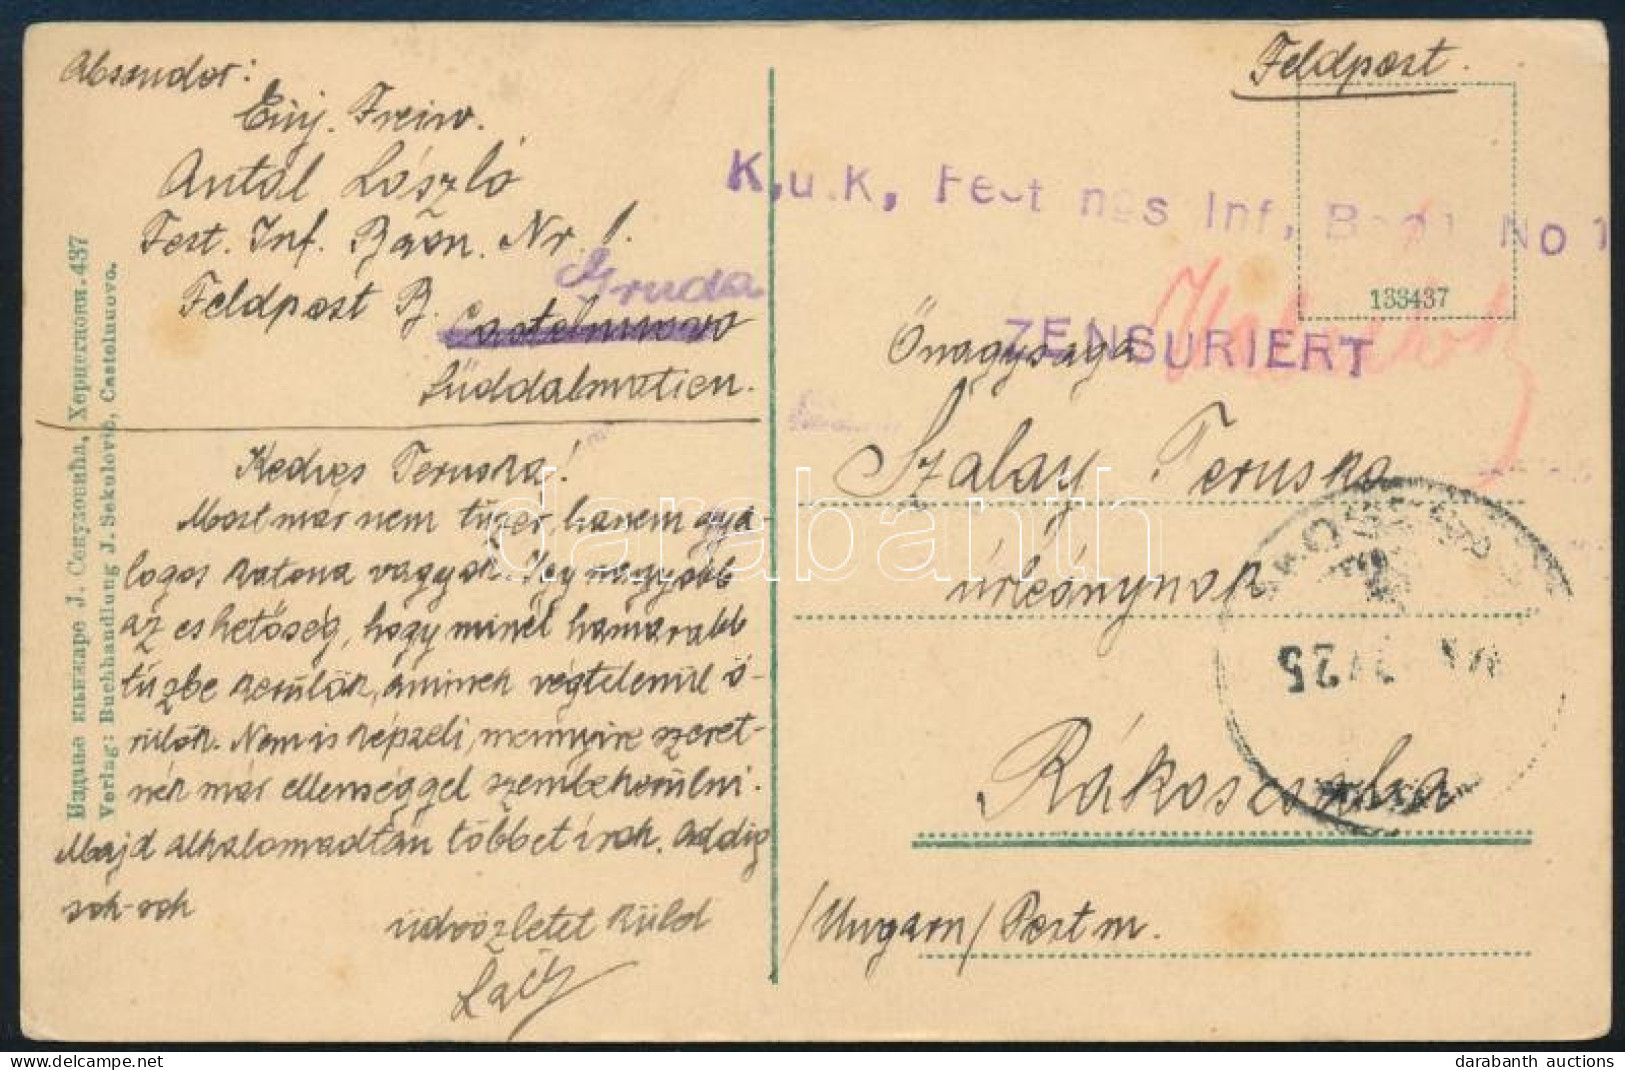 Absender:
Einj. Freiw.
Antal László
Fest. Inf. Baon. Nr. 1.
Gruda
Feldpost B. Castelnuovo
Süddalmatien.
Kedves Teruska!
Most már nem tüzér, hanem gya-
logos katona vagyok. Így nagyobb
az eshetőség, hogy minél hamarabb
tűzbe kerülök, aminek végtelenül ö-
rülök. Nem is képzeli, mennyire szeret-
nék már ellenséggel szembekerülni.
Majd alkalomadtán többet írok. Addig
sok-sok
üdvözletet küld
Laci
Издање књижаре Ј. Секуловића, Херцегнови. 437
Verlag: Buchhandlung J. Sekulović, Castelnuovo.
Feldpost.
K.u.K. Festungs Inf. Baon No 1
133437
ZENSURIERT
Őnagysága
Szalay Teruska
úrleánynak
Rákoscsaba
/Ungarn/ Pest m.
25
darabanth
darabanth auctions